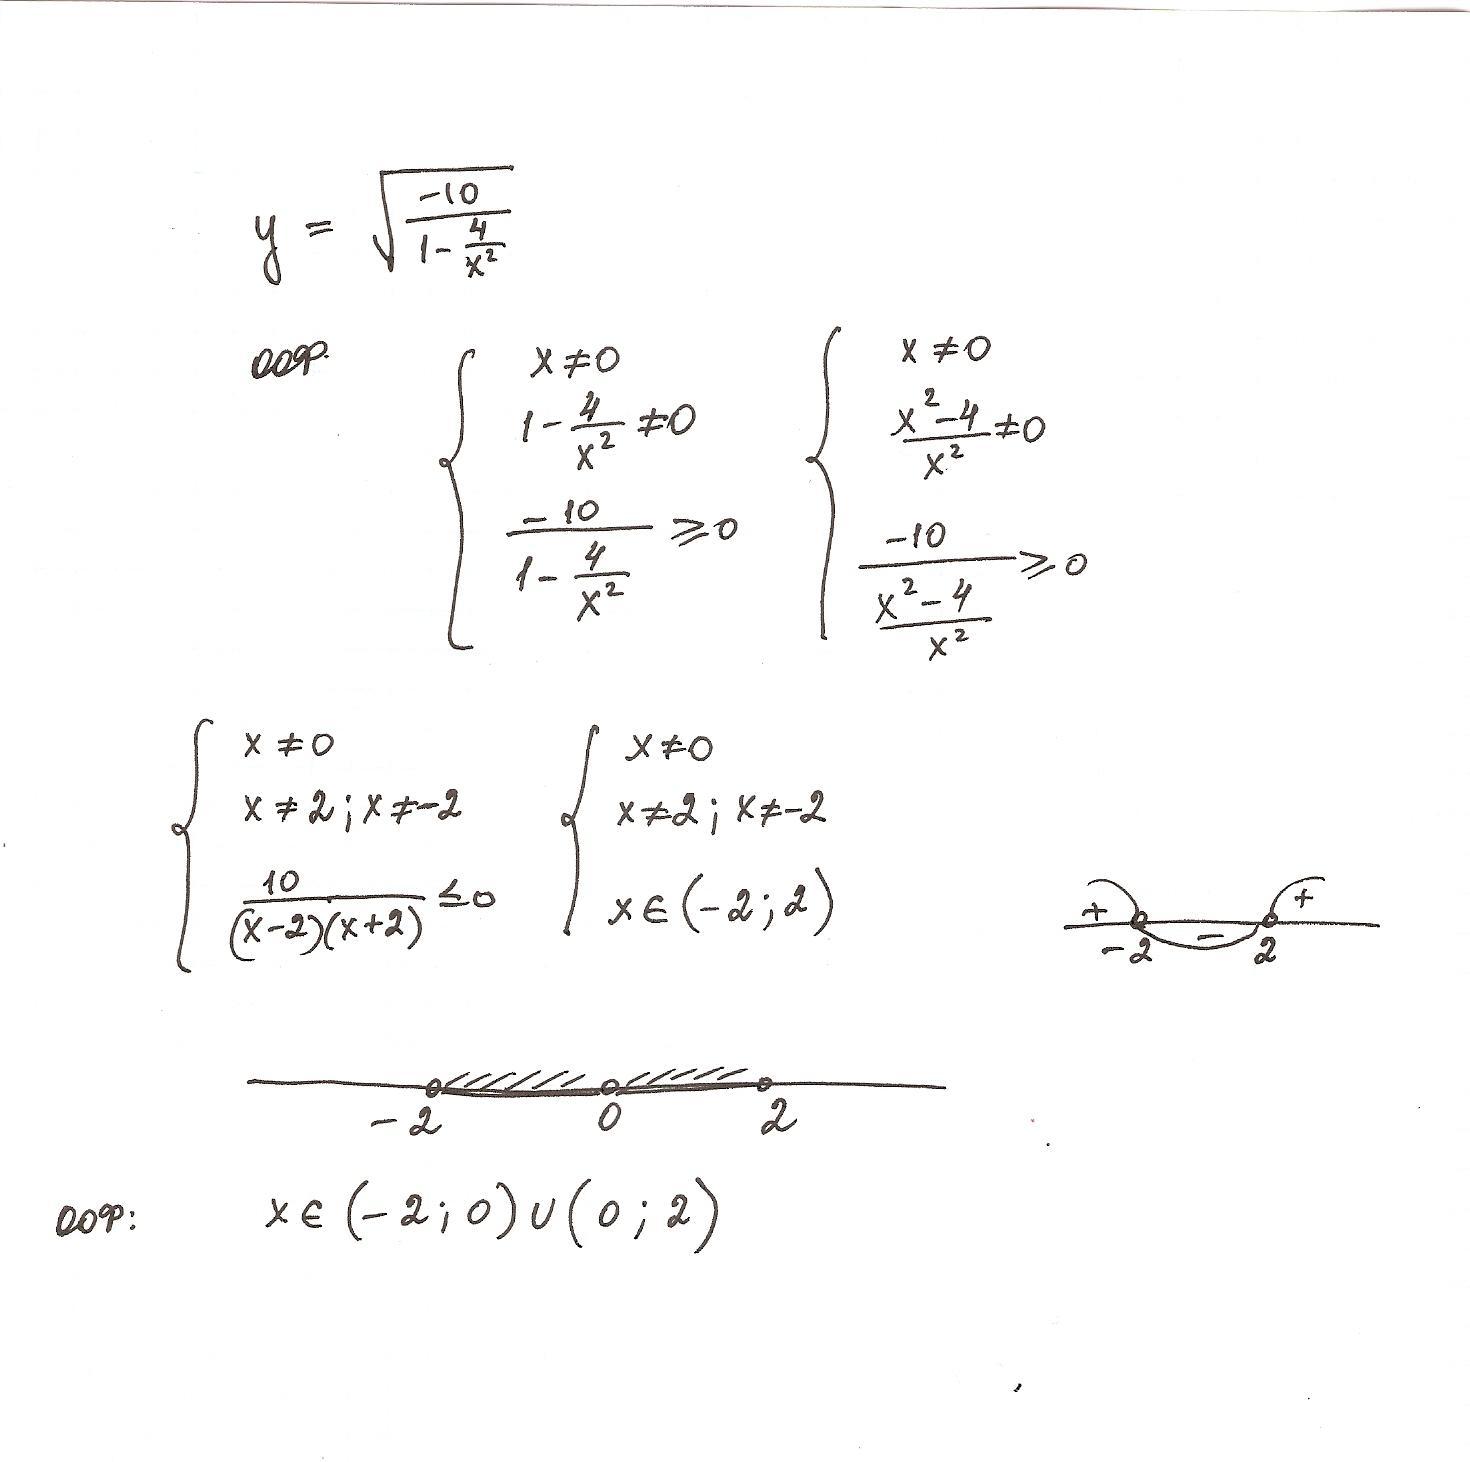 y = √(-10 / (1 - 4/x²))
ООФ.
{ x ≠ 0
1 - 4/x² ≠ 0
-10 / (1 - 4/x²) ⩾ 0
{ x ≠ 0
(x² - 4)/x² ≠ 0
-10 / ((x² - 4)/x²) ⩾ 0
{ x ≠ 0
x ≠ 2; x ≠ -2
10 / ((x-2)(x+2)) ≤ 0
{ x ≠ 0
x ≠ 2; x ≠ -2
x ∈ (-2; 2)
+ - +
-2 2
-2 0 2
ООФ: x ∈ (-2; 0) ∪ (0; 2)